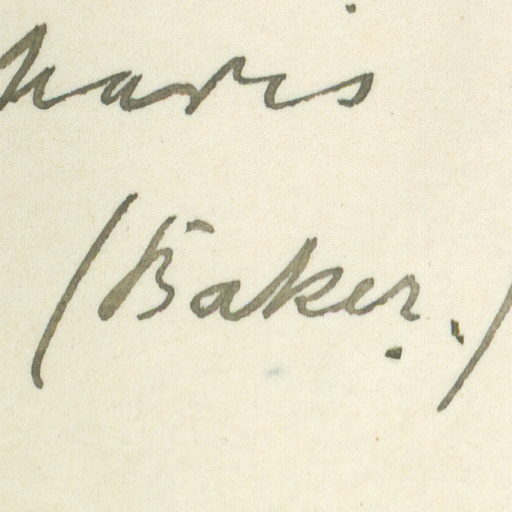 haris
(Baker.)